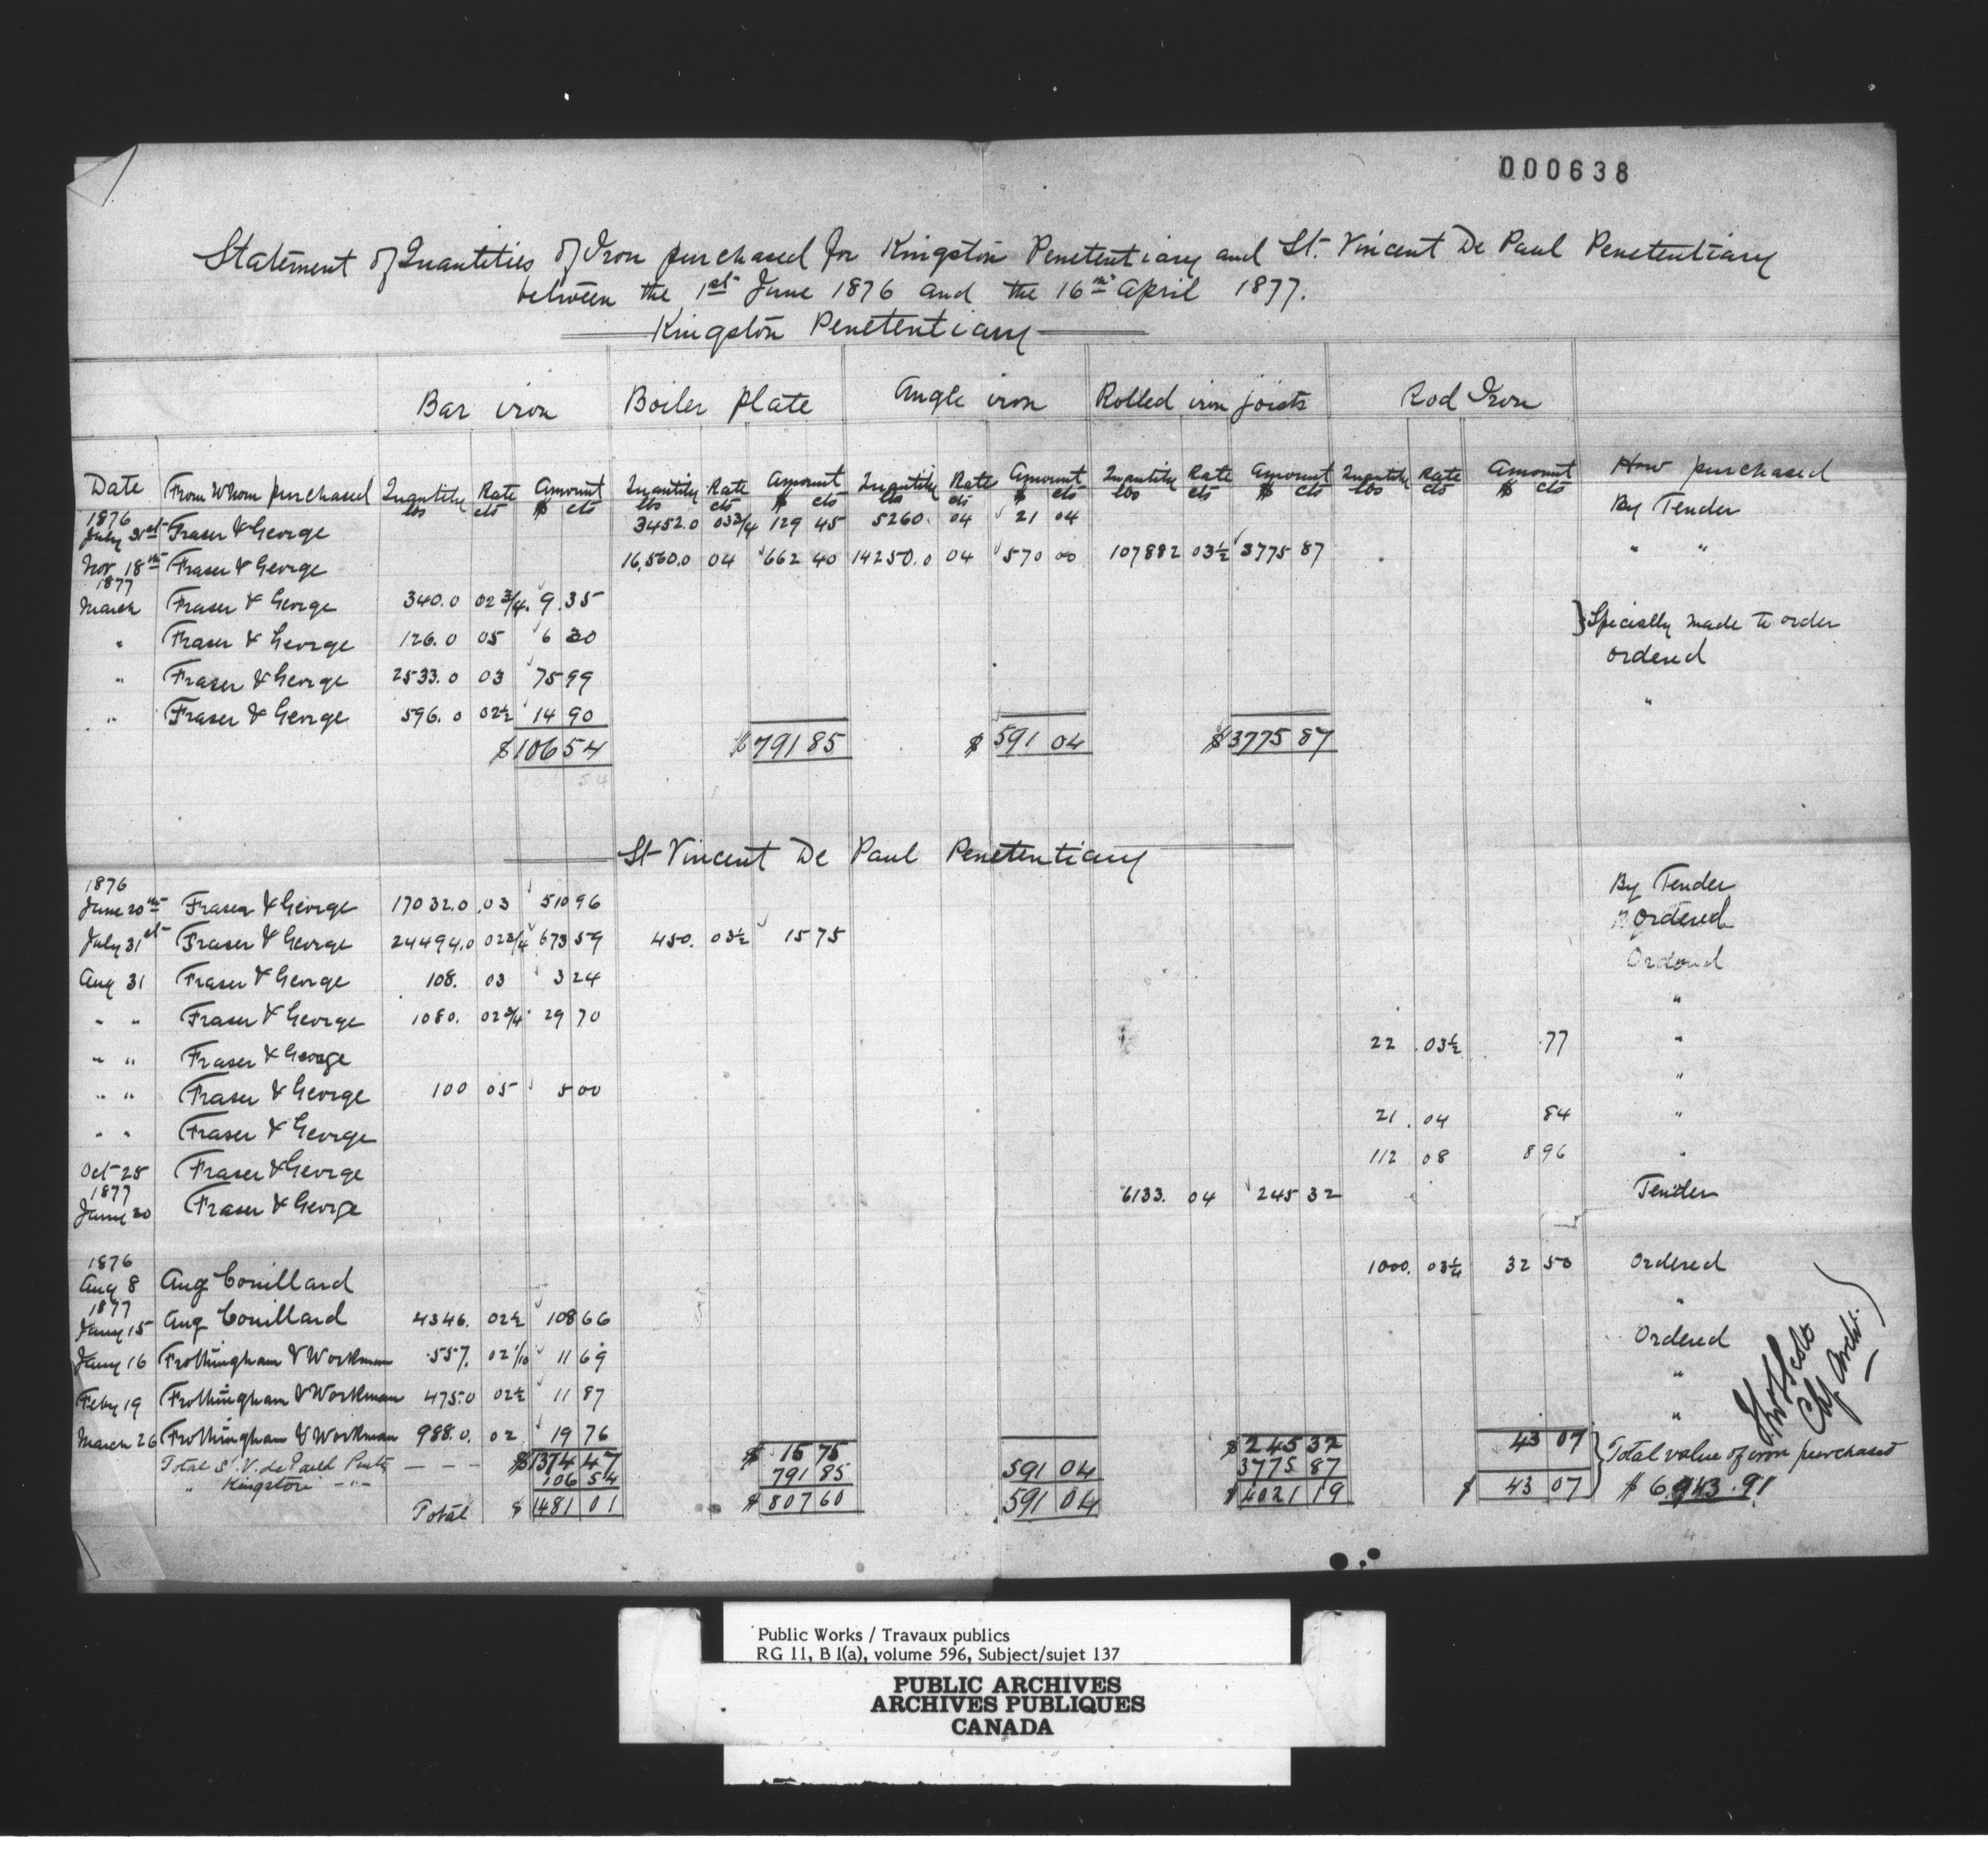 000638
Statement of Quantities of Iron purchased for Kingston Penetentiary and St. Vincent De Paul Penetentiary
between the 1st June 1876 and the 16th April 1877.
Kingston Penetentiary
Bar iron Boiler plate Angle iron Rolled iron joists Rod Iron
Date From Whom purchased Quantity lbs Rate cts Amount $ cts Quantity lbs Rate cts Amount $ cts Quantity lbs Rate cts Amount $ cts Quantity lbs Rate cts Amount $ cts Quantity lbs Rate cts Amount $ cts How purchased
1876
July 31st Fraser & George 3452.0 03 3/4 129 45 526.0 04 21 04 By Tender
Nov 18th Fraser & George 16,560.0 04 662 40 14250.0 04 570 00 107882 03 1/2 3775 87 " "
1877
March Fraser & George 340.0 02 3/4 9.35
" Fraser & George 126.0 05 6 30 } Specially made to order
" Fraser & George 2533.0 03 75 99 ordered
" Fraser & George 596.0 02 1/2 14 90 "
$ 106 54 $ 791 85 $ 591 04 $ 3775 87
54
St Vincent De Paul Penetentiary
1876
June 20th Fraser & George 17032.0 .03 510 96 By Tender
July 31st Fraser & George 24494.0 02 3/4 673 59 450. 03 1/2 15 75 " Ordered
Aug 31 Fraser & George 108. 03 3 24 Ordered
" " Fraser & George 1080. 02 3/4 29 70 "
" " Fraser & George 22 .03 1/2 .77 "
" " Fraser & George 100 05 5 00 "
" " Fraser & George 21 .04 84 "
Oct 25 Fraser & George 112 08 8 96 "
1877
Jany 20 Fraser & George 6133. 04 245 32 Tender
1876
Aug 8 Aug Couillard 1000. 03 1/4 32 50 Ordered
1877
Jany 15 Aug Couillard 4346. 02 1/2 108 66 "
Jany 16 Frothingham & Workman 557. 02 1/10 11 69 Ordered
Feby 19 Frothingham & Workman 475.0 02 1/2 11 87 "
March 26 Frothingham & Workman 988.0. 02 19 76 "
Total St. V. de Paul Penty — — — $ 1374 47 $ 15 75 $ 245 32 43 07 } Total value of iron purchased
" Kingston — " — 106 54 791 85 591 04 3775 87
Total $ 1481 01 $ 807 60 591 04 $ 4021 19 $ 43 07 $ 6,943.91
Thos Scott
Chf Archt.
Public Works / Travaux publics
RG 11, B 1(a), volume 596, Subject/sujet 137
PUBLIC ARCHIVES
ARCHIVES PUBLIQUES
CANADA